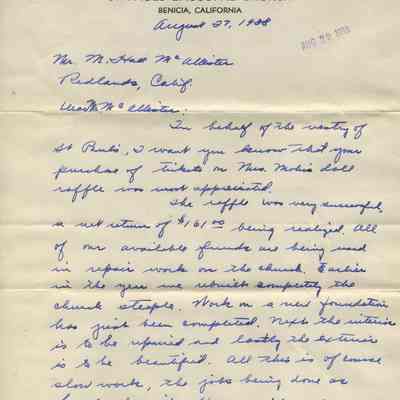 BENICIA, CALIFORNIA
August 27, 1938
AUG 29 1938
Mr. M. Hall McAllister
Redlands, Calif.
Dear Mr McAllister:
In behalf of the vestry of
St Pauls, I want you know that your
purchase of tickets on Mrs. Mohis doll
raffle was most appreciated.
The raffle was very successful,
a net return of $161.00 being realized. All
of our available funds are being used
in repair work on the church. Earlier
in the year we rebuilt completely the
church steeple. Work on a new foundation
has just been completed. Next the interior
is to be repaired and lastly the exterior
is to be beautified. All this is of course
slow work, the jobs being done as